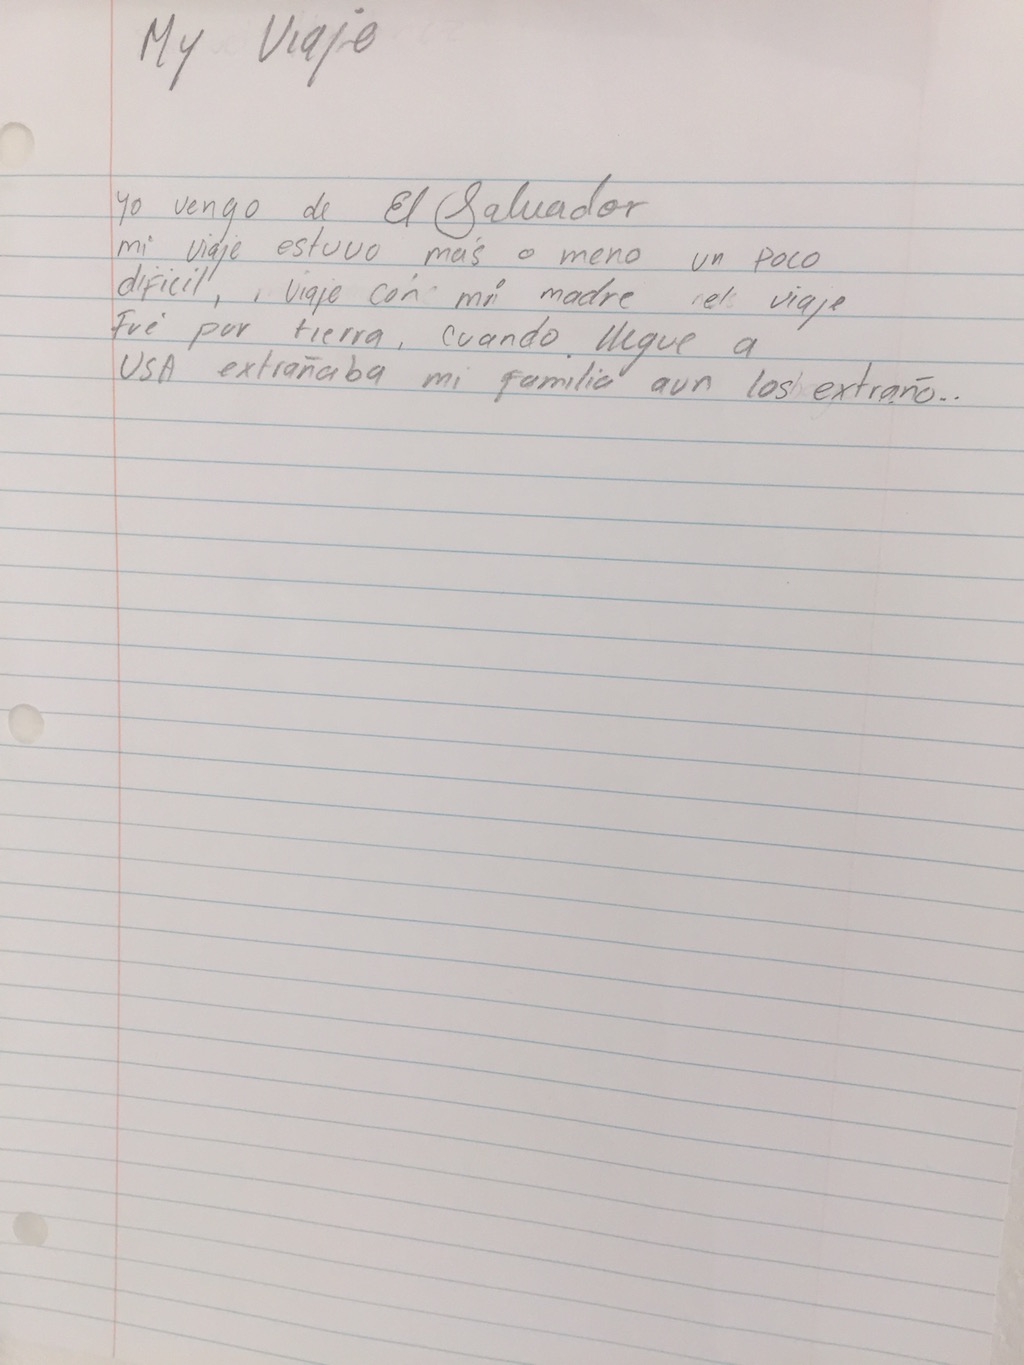 My Viaje
Yo vengo de El Salvador
mi viaje estuvo más o meno un poco
dificil, viaje con mi madre el viaje
Fué por tierra, cuando llegue a
USA extrañaba mi familia aun los extraño..